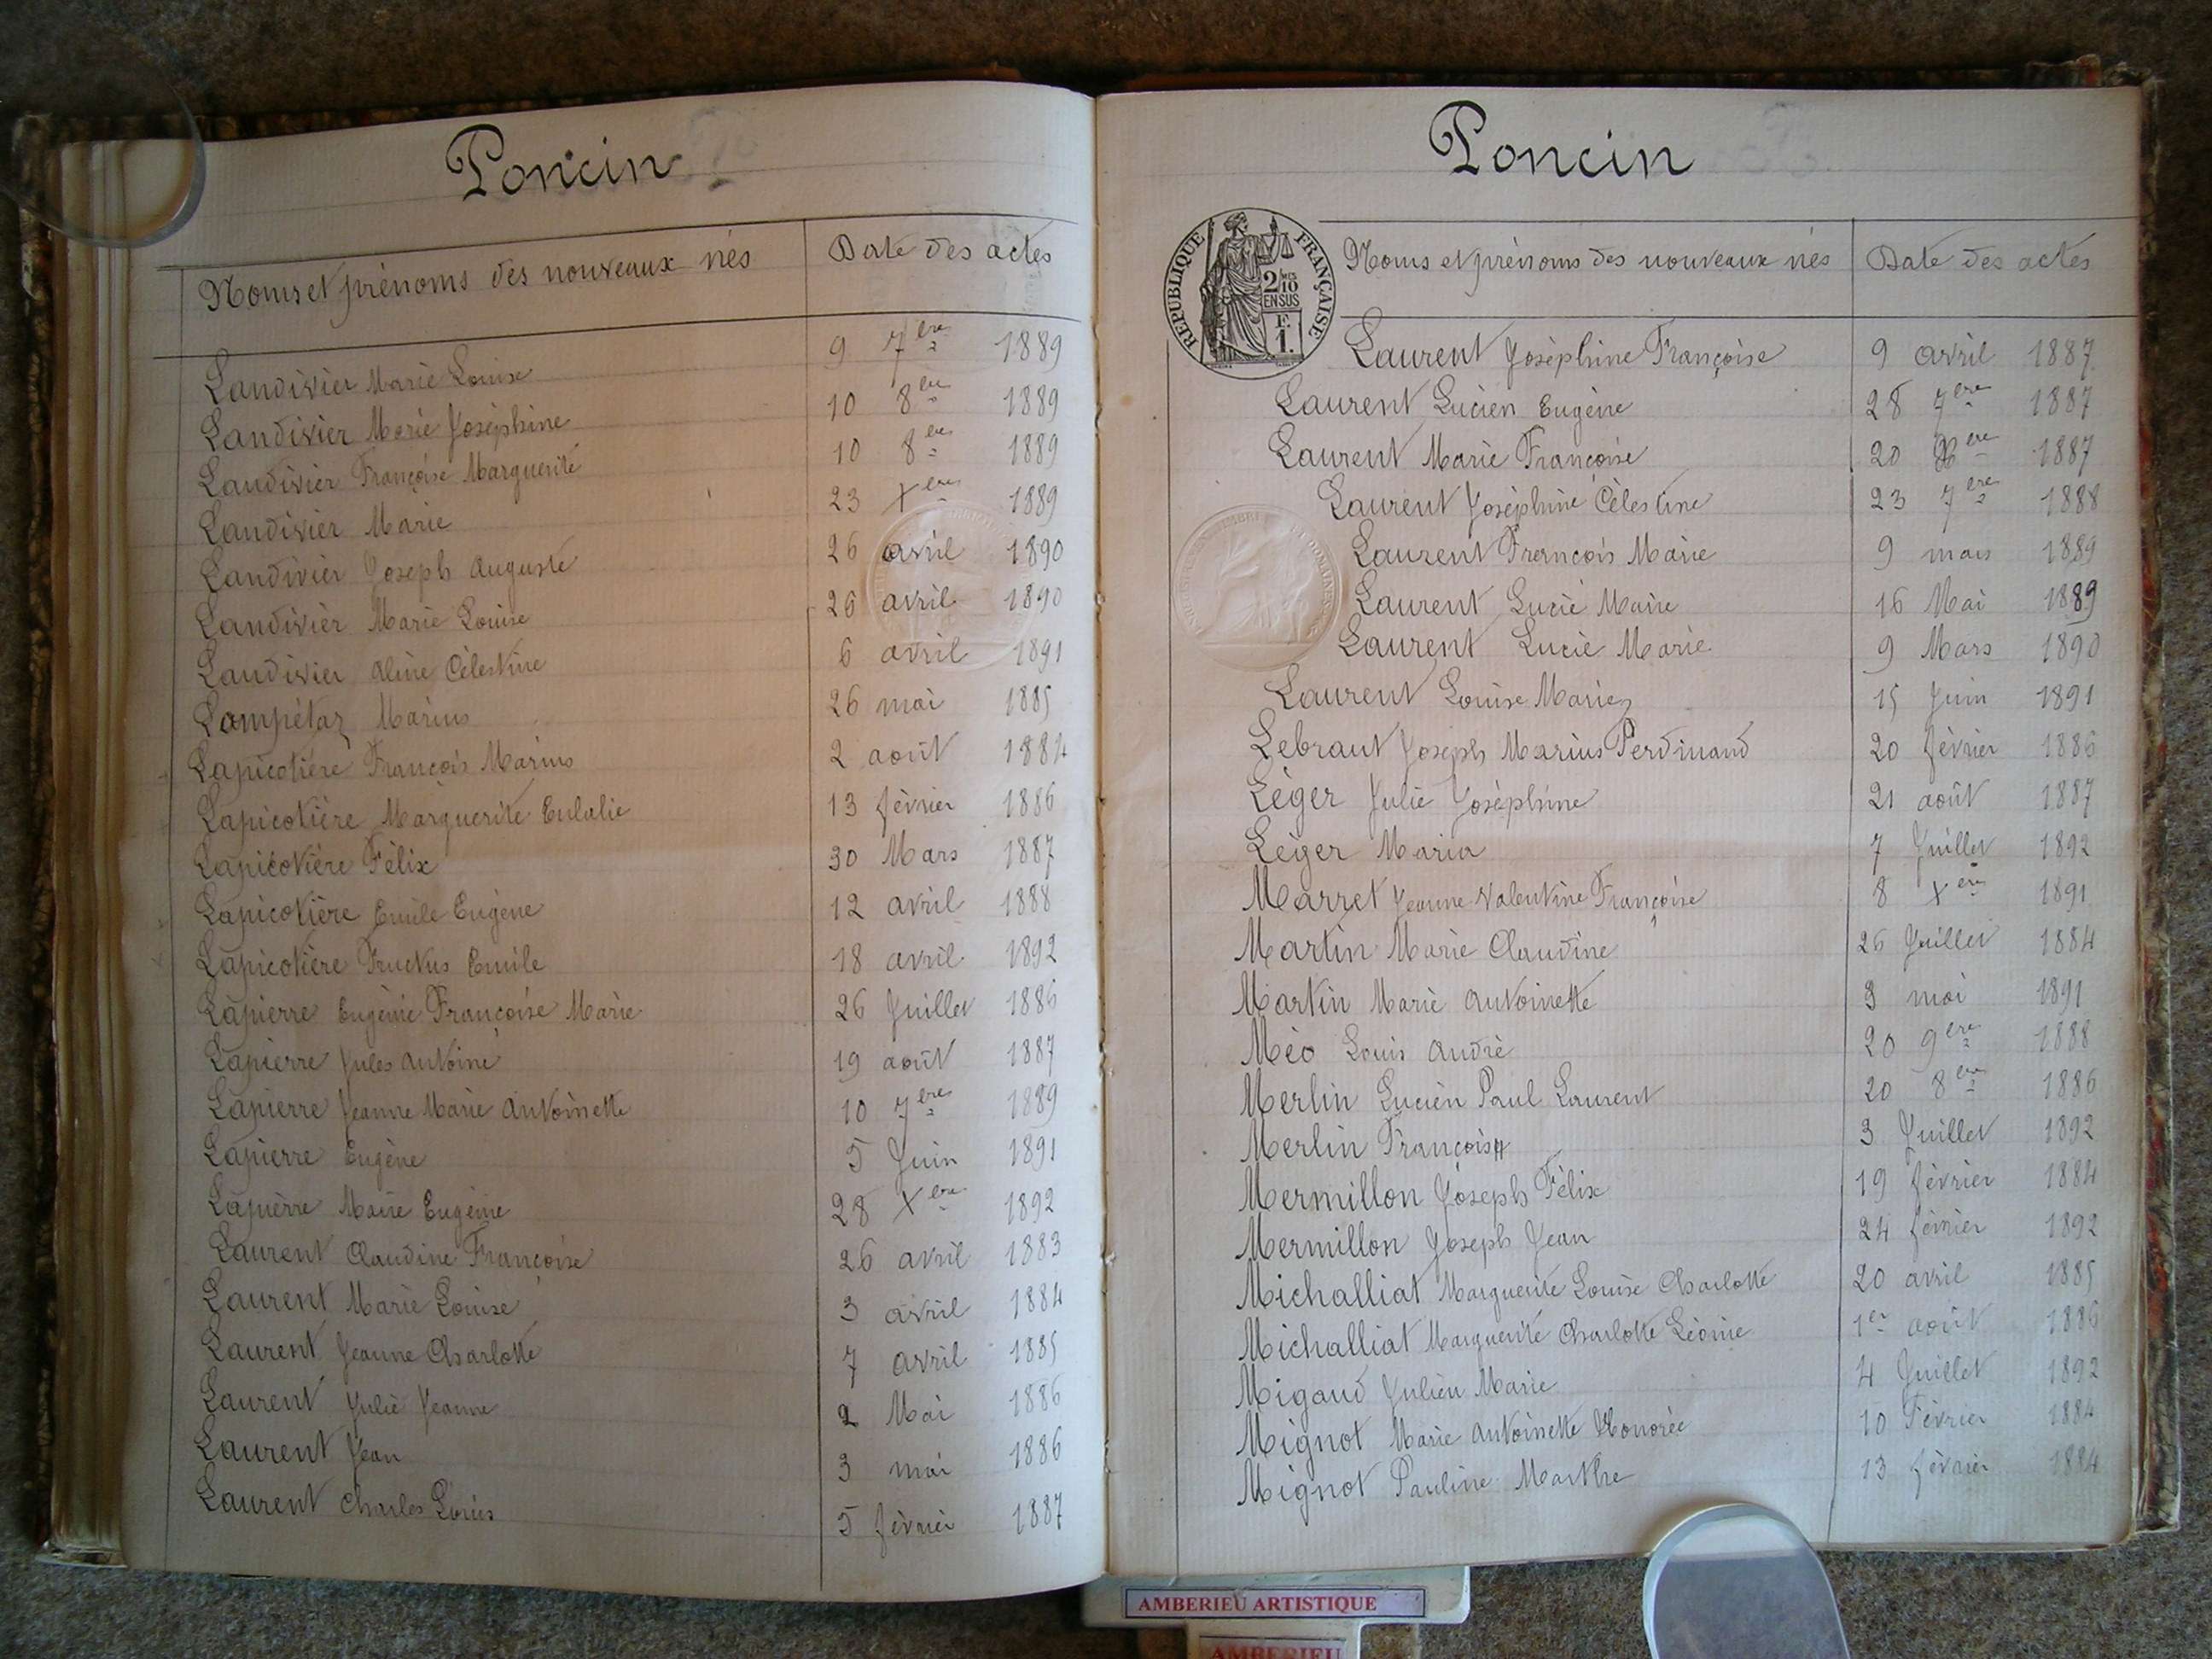 Poncin
Noms et prénoms des nouveaux nés Date des actes
Landivier Marie Louise 9 7ere 1889
Landivier Marie Joséphine 10 8ere 1889
Landivier Françoise Marguerite 10 8ere 1889
Landivier Marie 23 Xere 1889
Landivier Joseph Auguste 26 avril 1890
Landivier Marie Louise 26 avril 1890
Landivier Aline Célestine 6 avril 1891
Lampétaz Marius 26 mai 1885
Lapicotière François Marius 2 août 1884
Lapicotière Marguerite Eulalie 13 février 1886
Lapicotière Félix 30 Mars 1887
Lapicotière Emile Eugène 12 avril 1888
Lapicotière Fructus Emile 18 avril 1892
Lapierre Eugénie Françoise Marie 26 Juillet 1886
Lapierre Jules Antoine 19 août 1887
Lapierre Jeanne Marie Antoinette 10 7ere 1889
Lapierre Eugène 5 Juin 1891
Lapierre Marie Eugénie 28 Xere 1892
Laurent Claudine Françoise 26 avril 1883
Laurent Marie Louise 3 avril 1884
Laurent Jeanne Charlotte 7 avril 1885
Laurent Julie Jeanne 2 Mai 1886
Laurent Jean 3 mai 1886
Laurent Charles Louis 5 février 1887
Poncin
REPUBLIQUE FRANÇAISE
2 MES
10
EN SUS
F.
1.
Noms et prénoms des nouveaux nés Date des actes
Laurent Joséphine Françoise 9 avril 1887
Laurent Lucien Eugène 28 7ere 1887
Laurent Marie Françoise 20 ere 1887
Laurent Joséphine Célestine 23 7ere 1888
Laurent François Marie 9 mars 1889
Laurent Lucie Marie 16 Mai 1889
Laurent Lucie Marie 9 Mars 1890
Laurent Louise Marie 15 Juin 1891
Lebraut Joseph Marius Ferdinand 20 février 1886
Léger Julie Joséphine 21 août 1887
Léger Maria 7 Juillet 1892
Marret Jeanne Valentine Françoise 8 Xere 1891
Martin Marie Claudine 26 Juillet 1884
Martin Marie Antoinette 3 mai 1891
Méo Louis André 20 9ere 1888
Merlin Lucien Paul Laurent 20 8ere 1886
Merlin François 3 Juillet 1892
Mermillon Joseph Félix 19 février 1884
Mermillon Joseph Jean 24 février 1892
Michalliat Marguerite Louise Charlotte 20 avril 1885
Michalliat Marguerite Charlotte Léonie 1er août 1886
Migaud Julien Marie 4 Juillet 1892
Mignot Marie Antoinette Honorée 10 Février 1884
Mignot Pauline Marthe 13 février 1884
AMBERIEU ARTISTIQUE
AMBERIEU